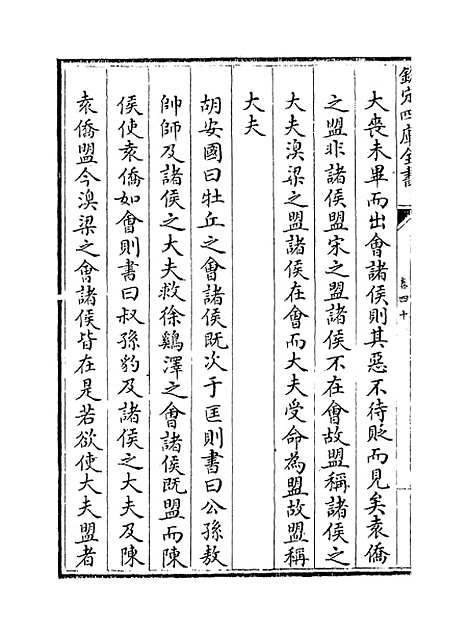 欽定四庫全書
卷四十
大喪未畢而出會諸侯則其惡不待貶而見矣袁僑
之盟非諸侯盟宋之盟諸侯不在會故盟稱諸侯之
大夫溴梁之盟諸侯在會而大夫受命為盟故盟稱
大夫
胡安國曰牡丘之會諸侯既次于匡則書曰公孫敖
帥師及諸侯之大夫救徐鷄澤之會諸侯既盟而陳
侯使袁僑如會則書曰叔孫豹及諸侯之大夫及陳
袁僑盟今溴梁之會諸侯皆在是若欲使大夫盟者